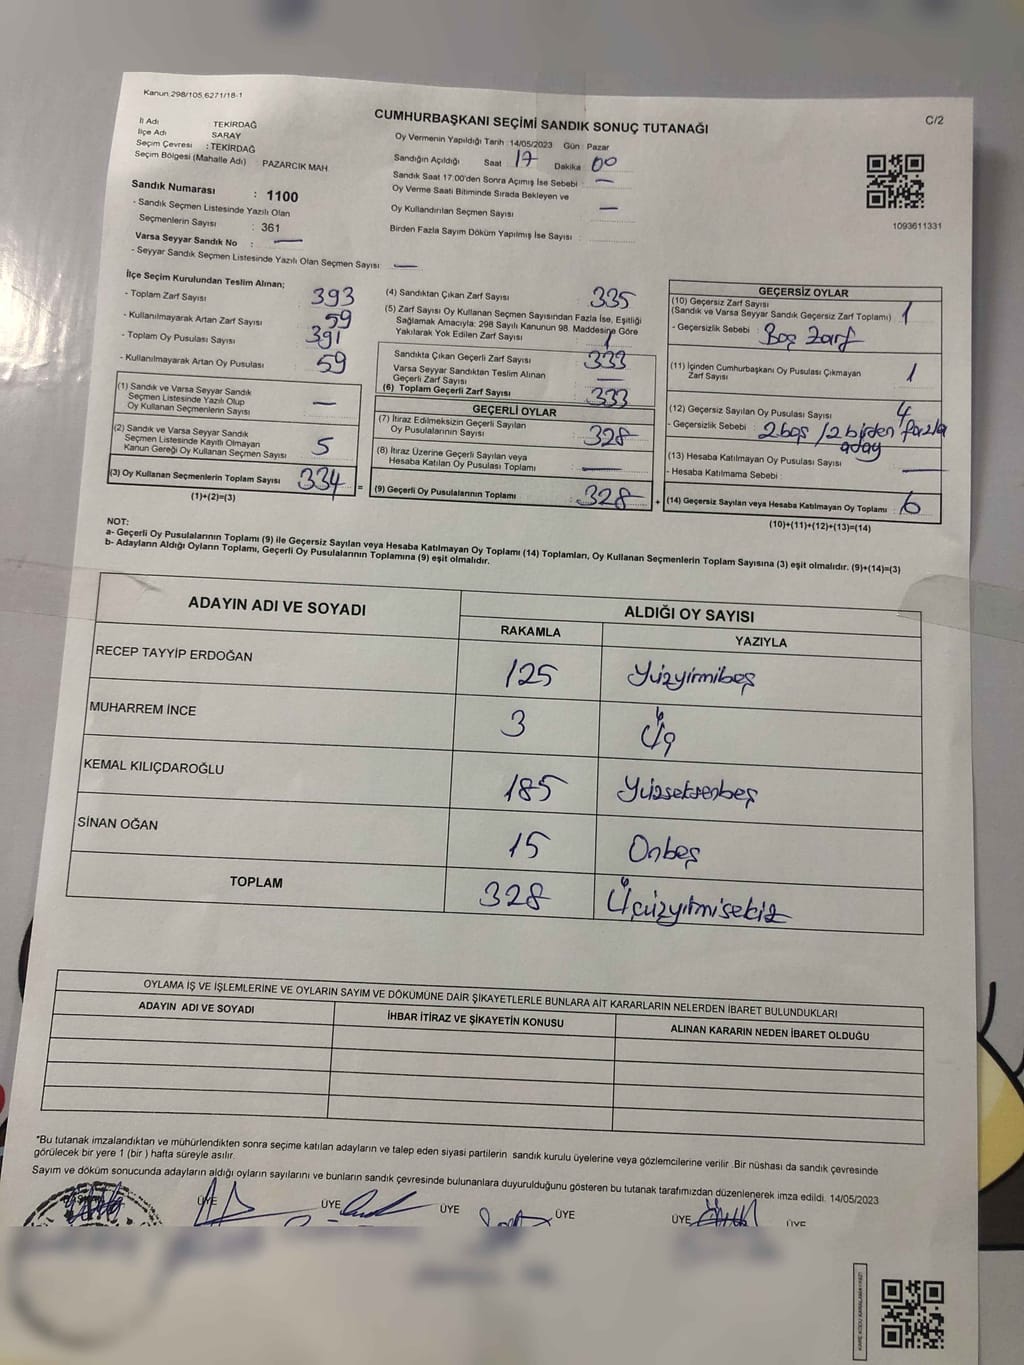 Kanun 298/105,6271/18-1
CUMHURBAŞKANI SEÇİMİ SANDIK SONUÇ TUTANAĞI
C/2
İl Adı TEKİRDAĞ
İlçe Adı SARAY
Seçim Çevresi : TEKİRDAĞ
Seçim Bölgesi (Mahalle Adı) PAZARCIK MAH
Sandık Numarası : 1100
- Sandık Seçmen Listesinde Yazılı Olan
Seçmenlerin Sayısı : 361
Varsa Seyyar Sandık No : —
- Seyyar Sandık Seçmen Listesinde Yazılı Olan Seçmen Sayısı : —
Oy Vermenin Yapıldığı Tarih 14/05/2023 Gün : Pazar
Sandığın Açıldığı Saat : 17 Dakika 00
Sandık Saat 17:00'den Sonra Açılmış İse Sebebi : —
Oy Verme Saati Bitiminde Sırada Bekleyen ve
Oy Kullandırılan Seçmen Sayısı —
Birden Fazla Sayım Döküm Yapılmış İse Sayısı :
1093611331
İlçe Seçim Kurulundan Teslim Alınan;
- Toplam Zarf Sayısı 393
- Kullanılmayarak Artan Zarf Sayısı 59
- Toplam Oy Pusulası Sayısı 391
- Kullanılmayarak Artan Oy Pusulası 59
(1) Sandık ve Varsa Seyyar Sandık
Seçmen Listesinde Yazılı Olup
Oy Kullanan Seçmenlerin Sayısı —
(2) Sandık ve Varsa Seyyar Sandık
Seçmen Listesinde Kayıtlı Olmayan
Kanun Gereği Oy Kullanan Seçmen Sayısı 5
(3) Oy Kullanan Seçmenlerin Toplam Sayısı 334 =
(1)+(2)=(3)
(4) Sandıktan Çıkan Zarf Sayısı : 335
(5) Zarf Sayısı Oy Kullanan Seçmen Sayısından Fazla İse, Eşitliği
Sağlamak Amacıyla; 298 Sayılı Kanunun 98. Maddesine Göre
Yakılarak Yok Edilen Zarf Sayısı : 1
Sandıkta Çıkan Geçerli Zarf Sayısı : 333
Varsa Seyyar Sandıktan Teslim Alınan
Geçerli Zarf Sayısı —
(6) Toplam Geçerli Zarf Sayısı 333
GEÇERLİ OYLAR
(7) İtiraz Edilmeksizin Geçerli Sayılan
Oy Pusulalarının Sayısı : 328
(8) İtiraz Üzerine Geçerli Sayılan veya
Hesaba Katılan Oy Pusulası Toplamı : —
(9) Geçerli Oy Pusulalarının Toplamı : 328 +
GEÇERSİZ OYLAR
(10) Geçersiz Zarf Sayısı
(Sandık ve Varsa Seyyar Sandık Geçersiz Zarf Toplamı) : 1
- Geçersizlik Sebebi : Boş Zarf
(11) İçinden Cumhurbaşkanı Oy Pusulası Çıkmayan
Zarf Sayısı 1
(12) Geçersiz Sayılan Oy Pusulası Sayısı 4
- Geçersizlik Sebebi : 2 boş / 2 birden fazla
aday
(13) Hesaba Katılmayan Oy Pusulası Sayısı —
- Hesaba Katılmama Sebebi :
(14) Geçersiz Sayılan veya Hesaba Katılmayan Oy Toplamı : 6
(10)+(11)+(12)+(13)=(14)
NOT:
a- Geçerli Oy Pusulalarının Toplamı (9) ile Geçersiz Sayılan veya Hesaba Katılmayan Oy Toplamı (14) Toplamları, Oy Kullanan Seçmenlerin Toplam Sayısına (3) eşit olmalıdır. (9)+(14)=(3)
b- Adayların Aldığı Oyların Toplamı, Geçerli Oy Pusulalarının Toplamına (9) eşit olmalıdır.
ADAYIN ADI VE SOYADI ALDIĞI OY SAYISI
RAKAMLA YAZIYLA
RECEP TAYYİP ERDOĞAN 125 Yüzyirmibeş
MUHARREM İNCE 3 Üç
KEMAL KILIÇDAROĞLU 185 Yüzseksenbeş
SİNAN OĞAN 15 Onbeş
TOPLAM 328 Üçüzyirmisekiz
OYLAMA İŞ VE İŞLEMLERİNE VE OYLARIN SAYIM VE DÖKÜMÜNE DAİR ŞİKAYETLERLE BUNLARA AİT KARARLARIN NELERDEN İBARET BULUNDUKLARI
ADAYIN ADI VE SOYADI İHBAR İTİRAZ VE ŞİKAYETİN KONUSU ALINAN KARARIN NEDEN İBARET OLDUĞU
*Bu tutanak imzalandıktan ve mühürlendikten sonra seçime katılan adayların ve talep eden siyasi partilerin sandık kurulu üyelerine veya gözlemcilerine verilir .Bir nüshası da sandık çevresinde
görülecek bir yere 1 (bir ) hafta süreyle asılır.
Sayım ve döküm sonucunda adayların aldığı oyların sayılarını ve bunların sandık çevresinde bulunanlara duyurulduğunu gösteren bu tutanak tarafımızdan düzenlenerek imza edildi. 14/05/2023
ÜYE ÜYE ÜYE ÜYE ÜYE ÜYE